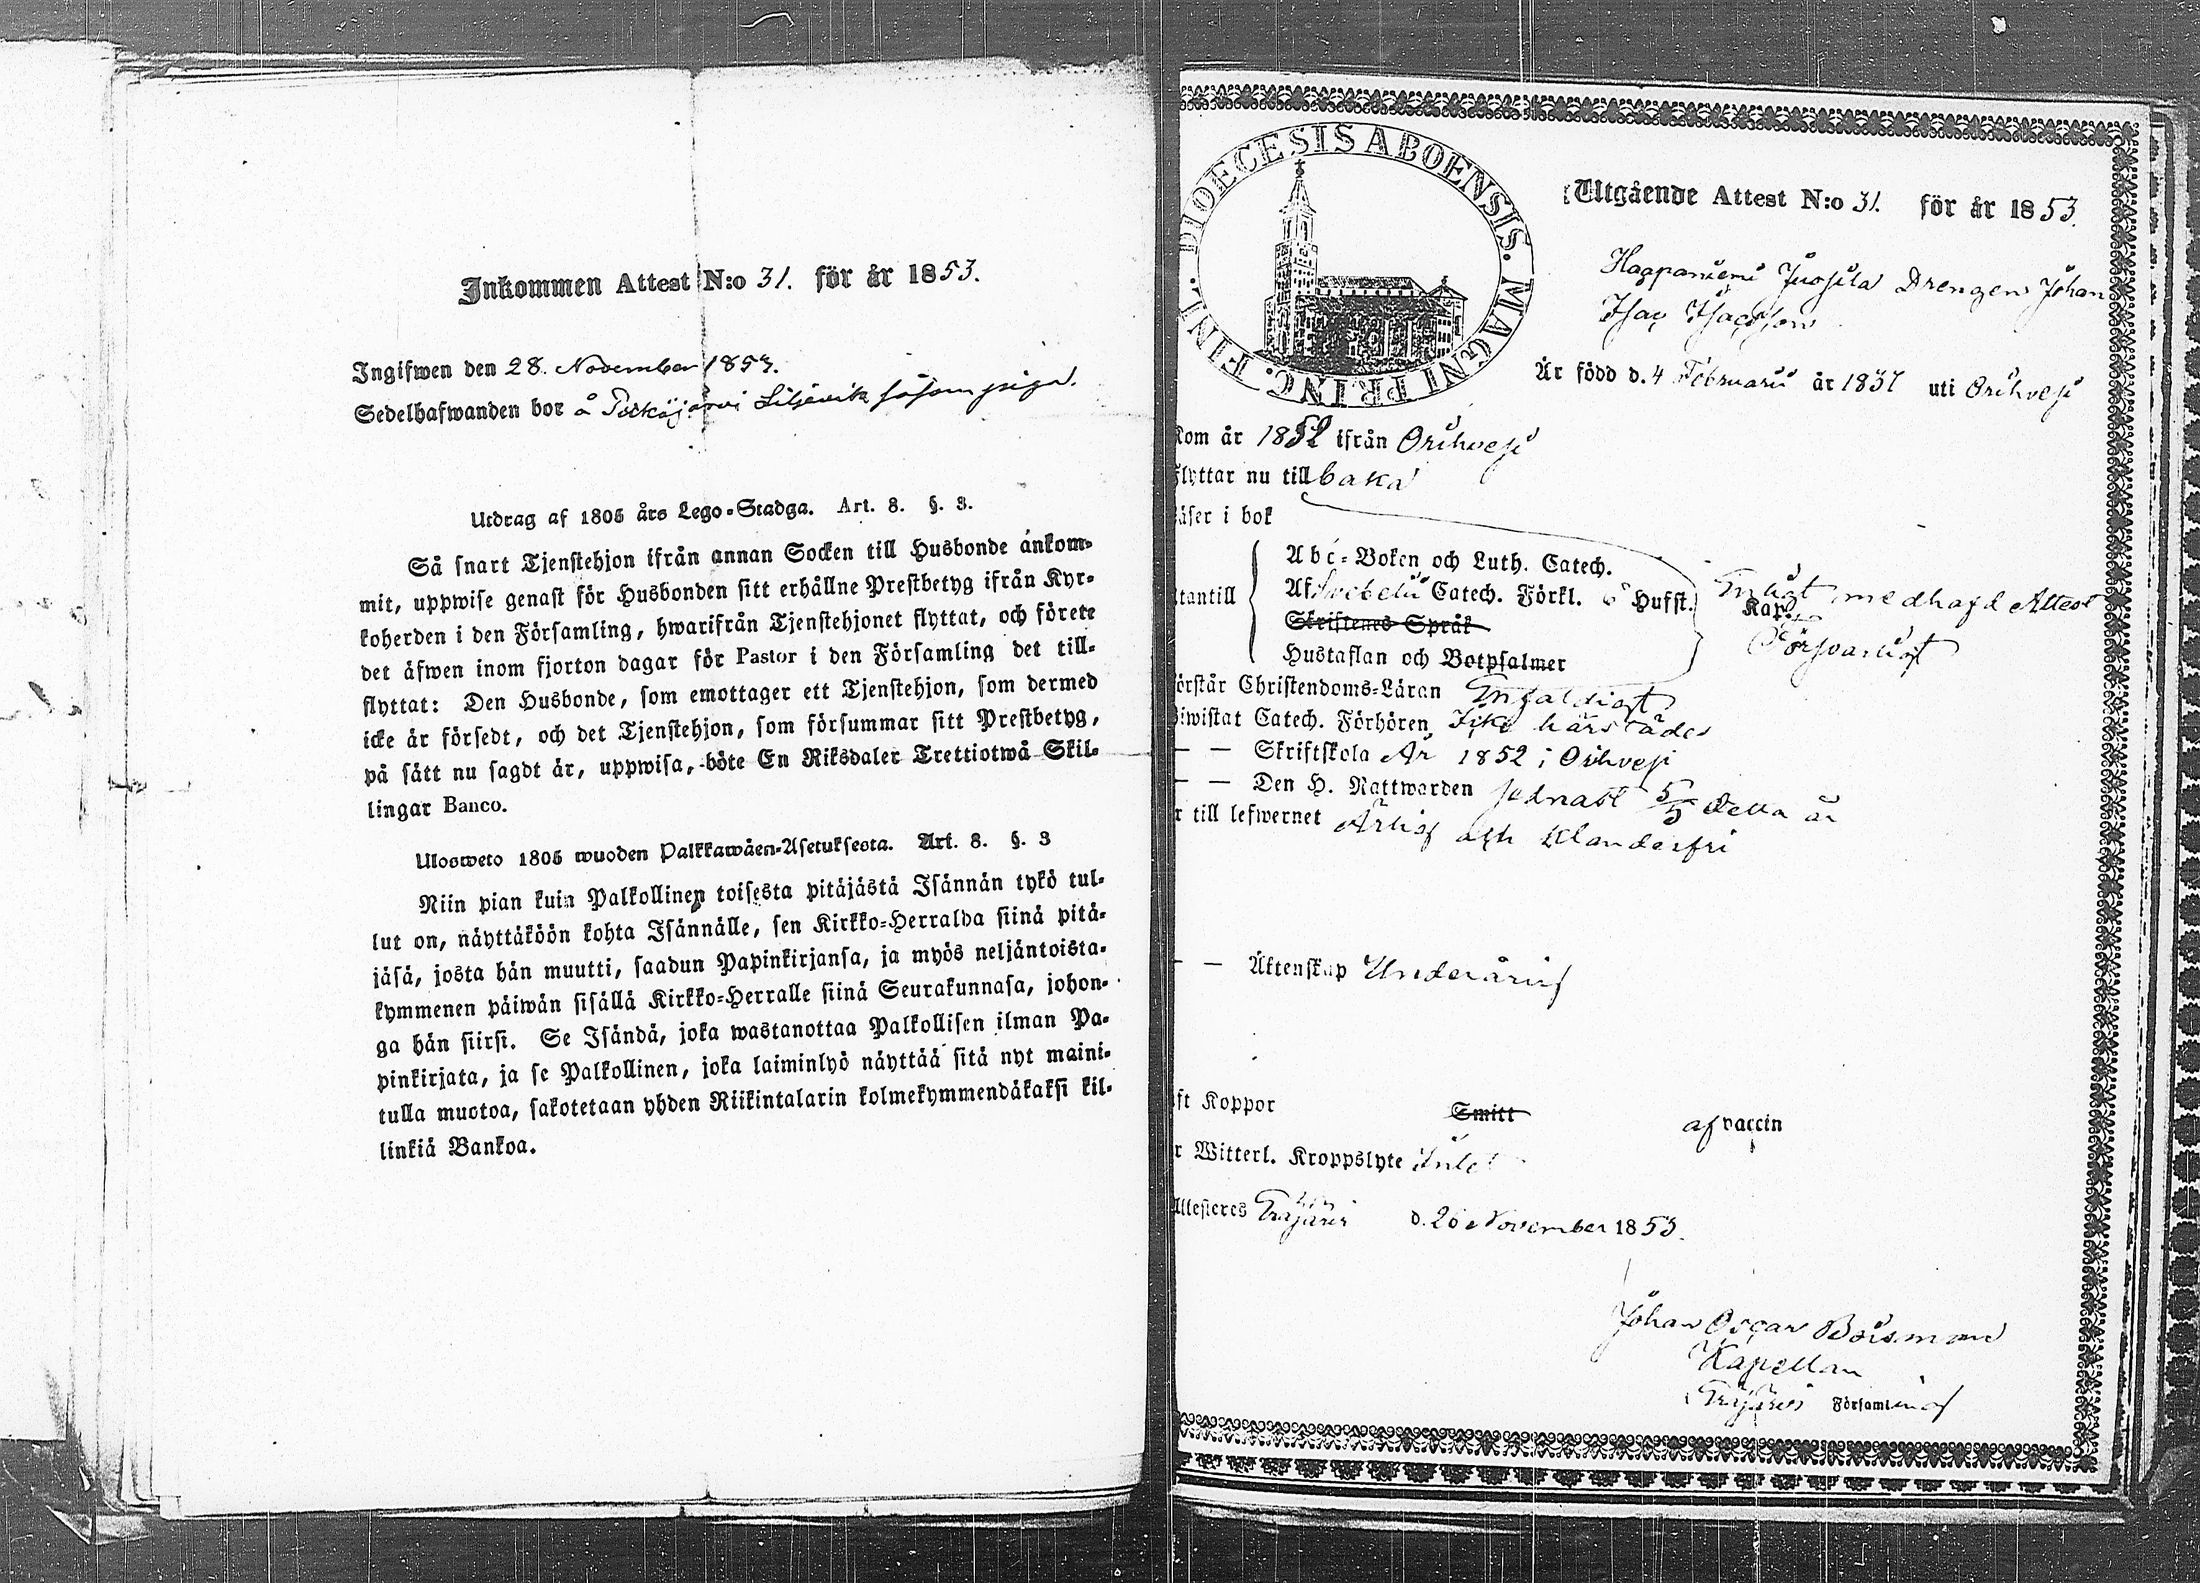 Inkommen Attest N:o 31. för år 1853.
Ingifwen den 28. November 1853.
Sedelhafwanden bor å Liljevik såsom piga.
Utdrag af 1805 års Lego-Stadga. Art. 8. §. 3.
Så snart Tjenstehjon ifrån annan Socken till Husbonde ankom-
mit, uppwise genast för Husbonden sitt erhållne Prestbetyg ifrån Kyr-
koherden i den Församling, hwarifrån Tjenstehjonet flyttat, och förete
det äfwen inom fjorton dagar för Pastor i den Församling det till-
flyttat: Den Husbonde, som emottager ett Tjenstehjon, som dermed
icke är försedt, och det Tjenstehjon, som försummar sitt Prestbetyg,
på sätt nu sagdt är, uppwisa, böte En Riksdaler Trettiotwå Skil-
lingar Banco.
Ulosweto 1805 wuoden Palkkawäen-Asetuksesta. Art. 8. §. 3
Niin pian kuin Palkollinen toisesta pitäjästä Isännän tykö tul-
lut on, näyttäköön kohta Isännälle, sen Kirkko-Herralda siinä pitä-
jäsä, josta hän muutti, saadun Papinkirjansa, ja myös neljäntoista-
kymmenen päiwän sisällä Kirkko-Herralle siinä Seurakunnasa, johon-
ga hän siirsi. Se Isändä, joka wastanottaa Palkollisen ilman Pa-
pinkirjata, ja se Palkollinen, joka laiminlyö näyttää sitä nyt maini-
tulla muotoa, sakotetaan yhden Riikintalarin kolmekymmendäkaksi kil-
linkiä Bankoa.
DIOECESIS ABOENSIS. MAGNI PRINC. FINL.
Utgående Attest N:o 31. för år 1853.
Haapaniemi Juosila Drengen Johan
Isac Isacsson
Är född d. 4 Februarii år 1837 uti Orihvesi
Kom år 1852 ifrån Orihvesi
Flyttar nu tillbaka
Läser i bok
Abc-Boken och Luth. Catech.
utantill Af Svebelii Catech. Förkl. Hufst. Kap. Enligt medhafd Attest
Skriftenes Språk Försvarligt
Hustaflan och Botpsalmer
Förstår Christendoms-Läran Enfaldigt
Biwistat Catech. Förhören Icke härstädes
— — Skriftskola År 1852 i Orihvesi
— — Den H. Nattwarden sednast 5/5 detta år
r till lefwernet Ärlig och Klanderfri
— — Äktenskap Underårig
ft Koppor Smitt af vaccin
r Witterl. Kroppslyte Intet
Attesteres Eräjärvi d. 26 November 1853.
Johan Oscar Boisman
Kapellan
Eräjärvi Församling